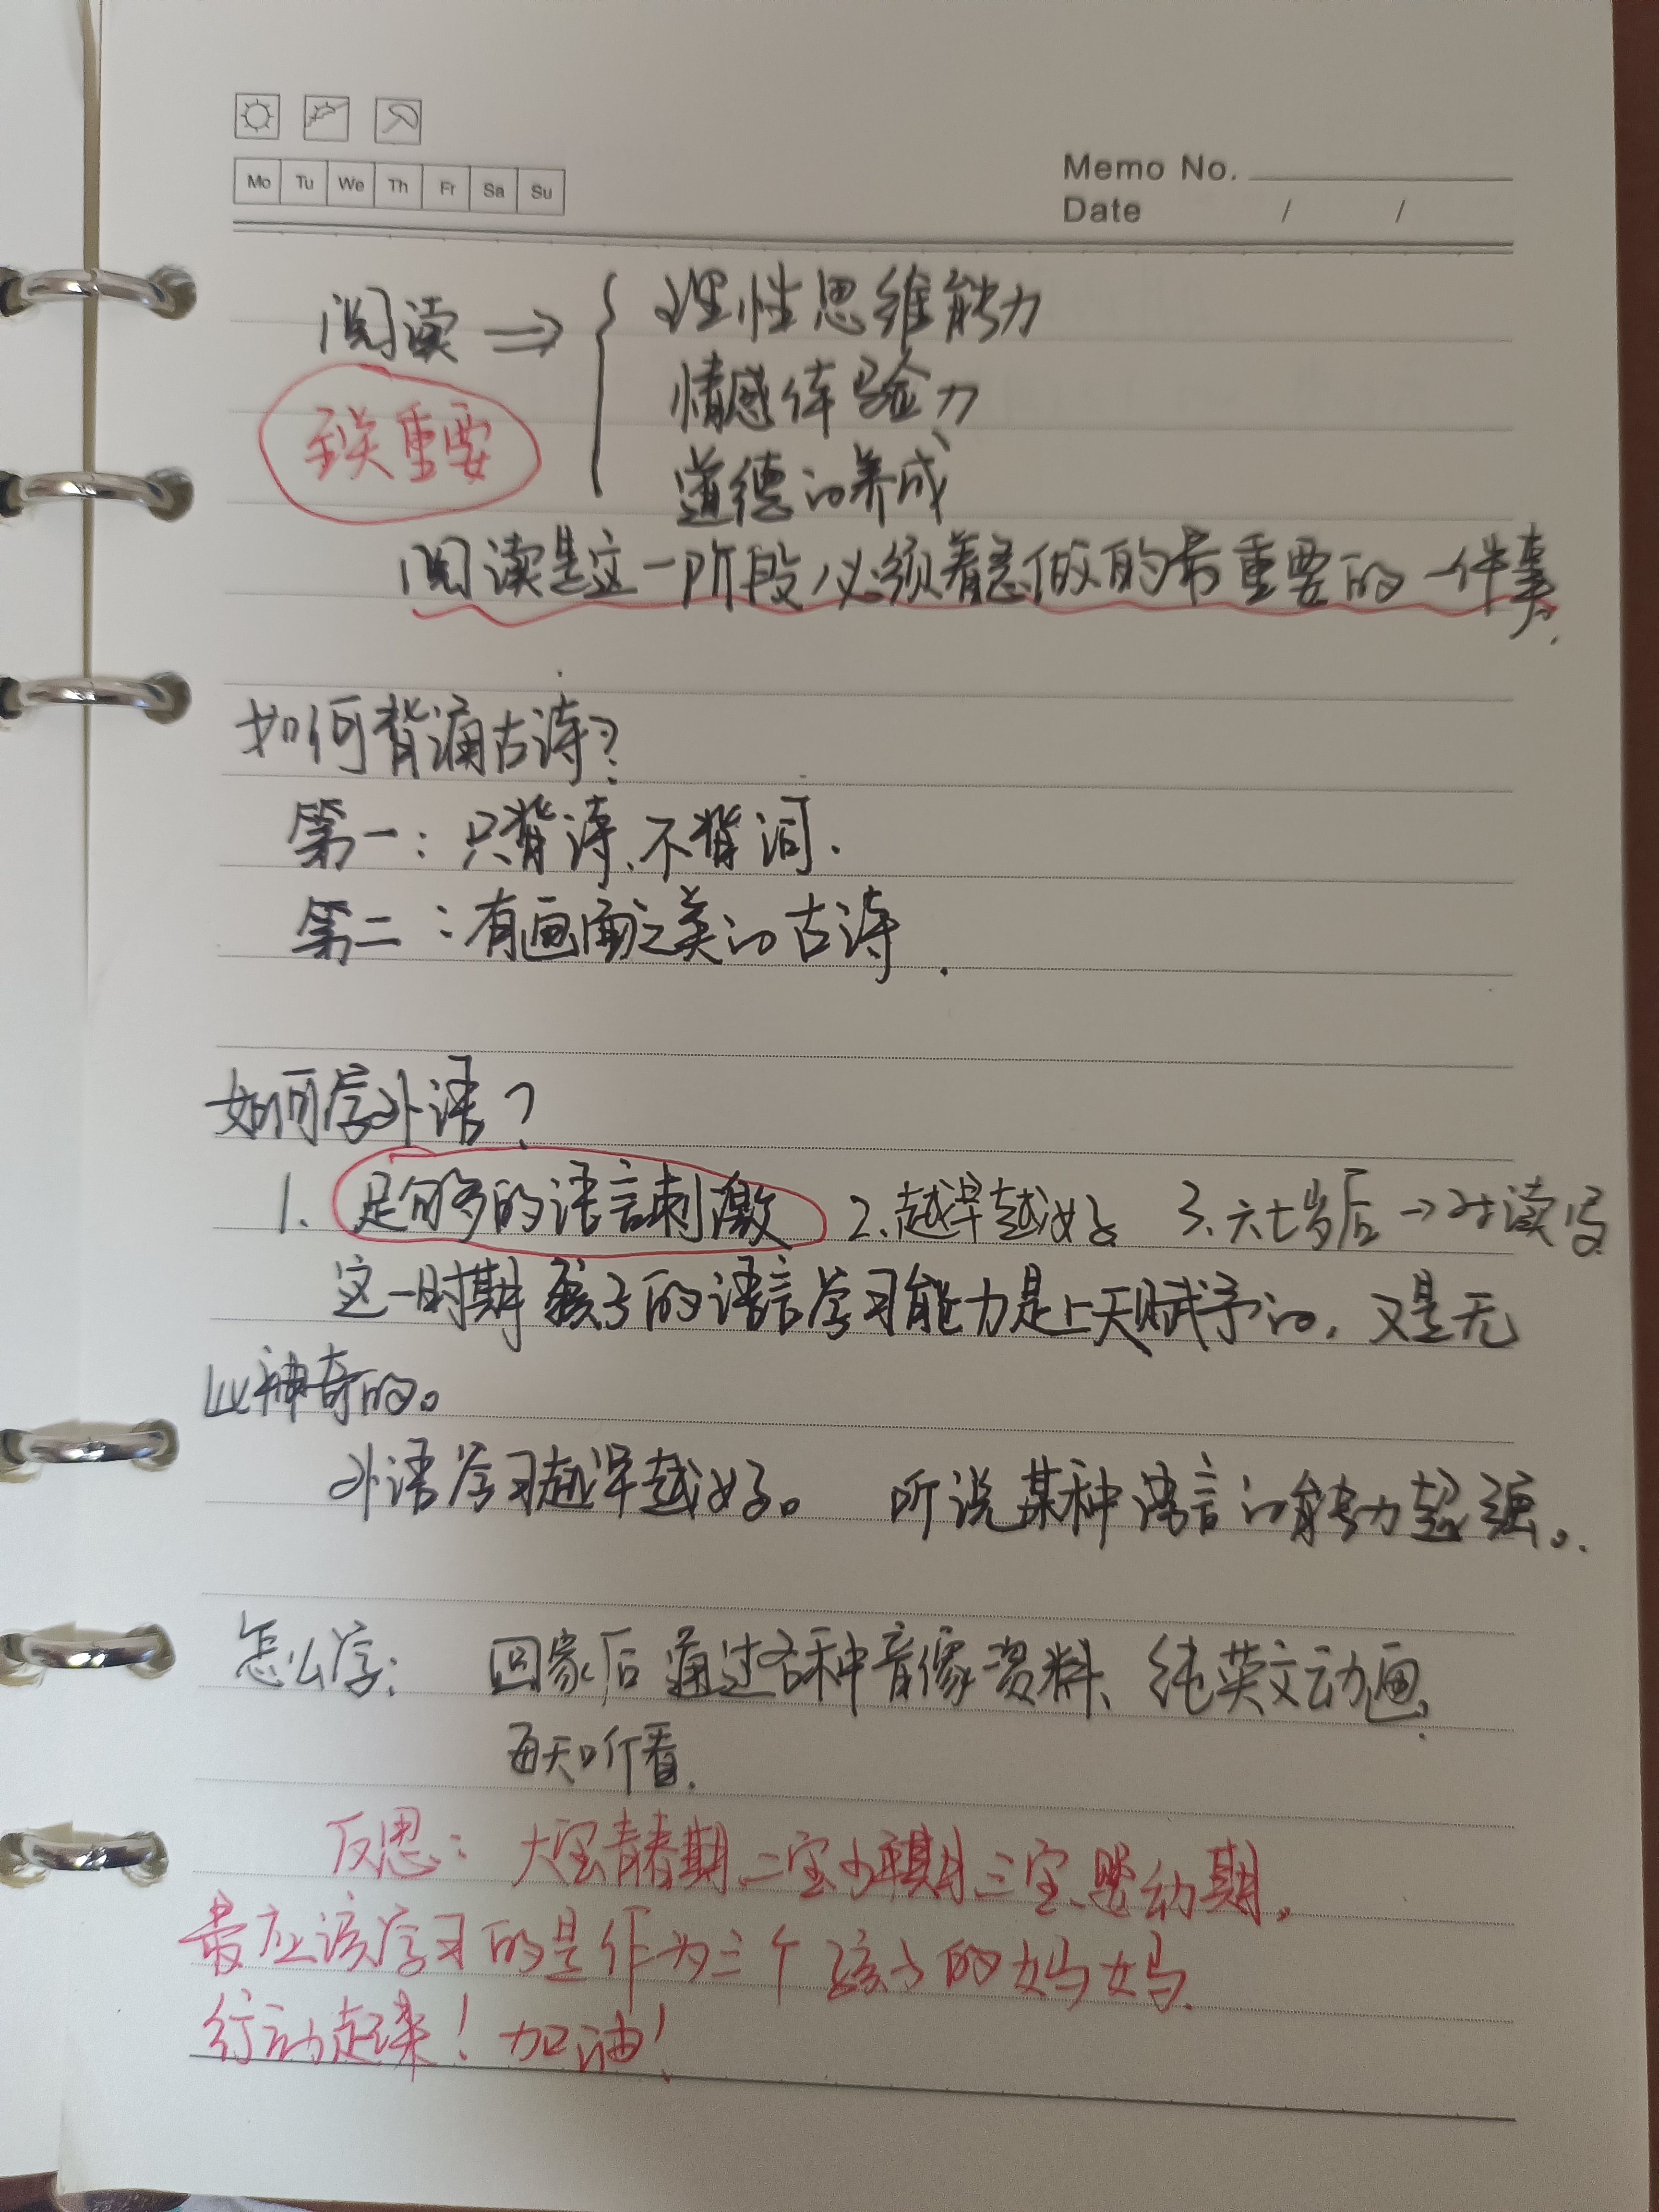 Mo Tu We Th Fr Sa Su
Memo No.
Date / /
阅读 ⇒ { 理性思维能力
情感体验力
至关重要
道德的养成
阅读是这一阶段必须着急做的最重要的一件事.
如何背诵古诗?
第一: 只背诗、不背词.
第二: 有画面之美的古诗.
如何学外语?
1. 足够的语言刺激 2. 越早越好 3. 六七岁后 → 读写
这一时期孩子的语言学习能力是上天赋予的, 又是无
比神奇的。
外语学习越早越好。 听说某种语言的能力超强。
怎么学: 回家后通过各种音像资料、纯英文动画,
每天听看.
反思: 大宝青春期、二宝少年期、三宝婴幼期。
最应该学习的是作为三个孩子的妈妈.
行动起来! 加油!